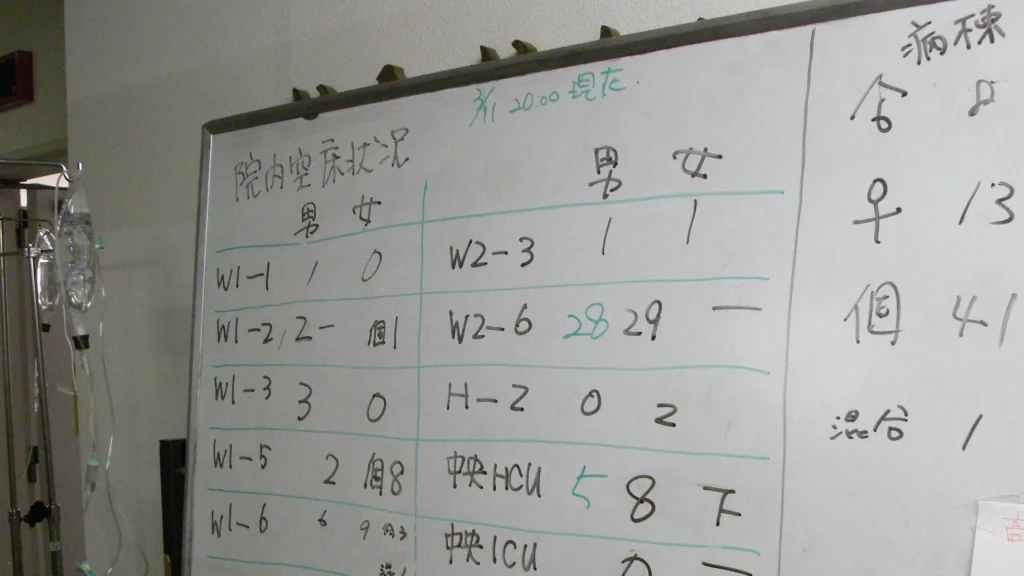 20:00 現在
院内空床状況
男 女
W1-1 1 0
W1-2 2 - 個1
W1-3 3 0
W1-5 2 個8
W1-6 6 9 個3
男 女
W2-3 1 1
W2-6 28 29 一
H-2 0 2
中央HCU 5 8 下
中央ICU
病棟
8
13
個 41
混合 1